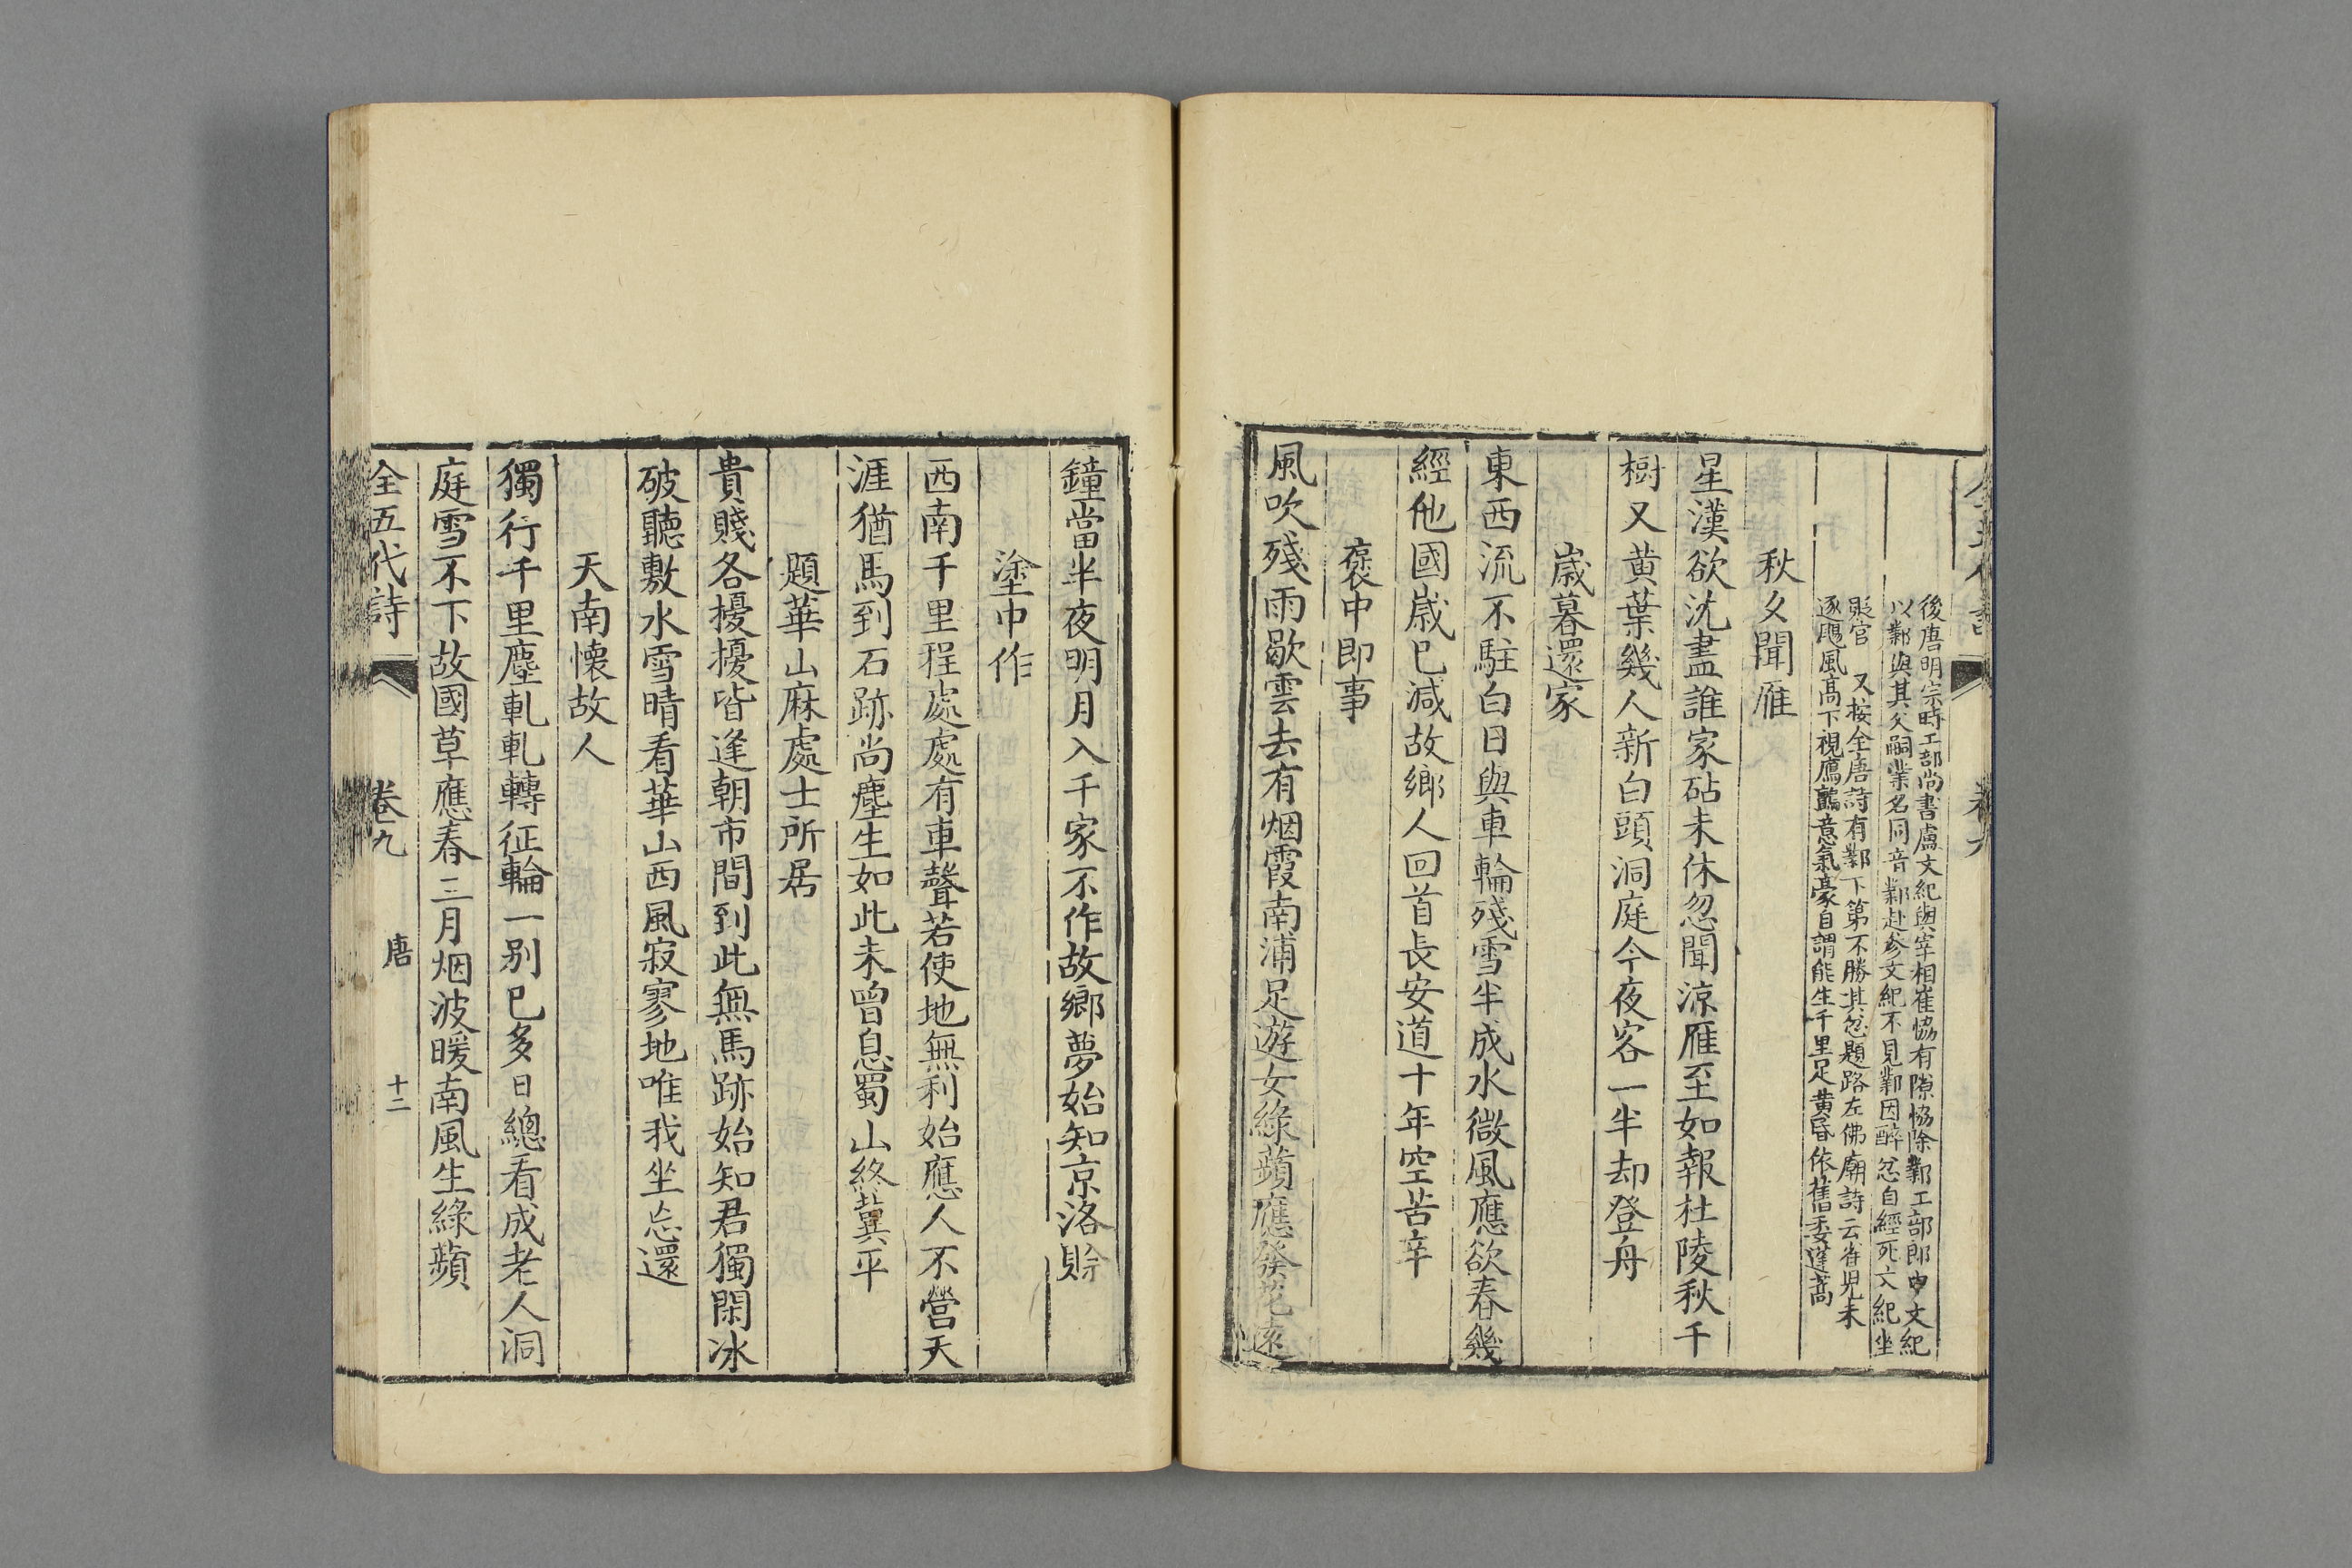 後唐明宗時工部尚書盧文紀與宰相崔協有隙協除鄴工部郎中文紀
以鄴與其父嗣業名同音鄴赴參文紀不見鄴因醉忿自經死文紀坐
貶官　又按全唐詩有鄴下第不勝其忿題路左佛廟詩云雀兒未
逐颺風高下視鷹鸇意氣豪自謂能生千里足黄昏依舊委蓬蒿
秋夕聞雁
星漢欲沈盡誰家砧未休忽聞涼雁至如報杜陵秋千
樹又黄葉幾人新白頭洞庭今夜客一半却登舟
歲暮還家
東西流不駐白日與車輪殘雪半成水微風應欲春幾
經他國歲已減故鄉人回首長安道十年空苦辛
褒中即事
風吹殘雨歇雲去有烟霞南浦足遊女綠蘋應發花遠
鐘當半夜明月入千家不作故鄉夢始知京洛賒
塗中作
西南千里程處處有車聲若使地無利始應人不營天
涯猶馬到石跡尚塵生如此未曾息蜀山終冀平
題華山麻處士所居
貴賤各擾擾皆逢朝市間到此無馬跡始知君獨閑冰
破聽敷水雪晴看華山西風寂寥地唯我坐忘還
天南懷故人
獨行千里塵軋軋轉征輪一别已多日總看成老人洞
庭雪不下故國草應春三月烟波暖南風生綠蘋
全五代詩　卷九　唐　十二